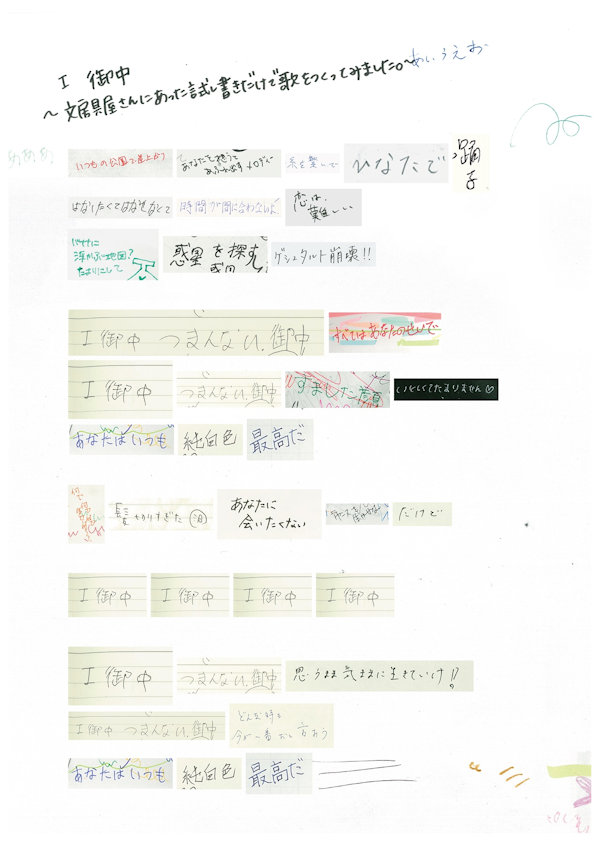 I 御中
～文房具屋さんにあった試し書きだけで歌をつくってみました。～ あいうえお
あああ いつもの公園で あなたを想うと あふれ出すメロディー 糸を繋いで ひなたで 踊子
はなしたくてはなせなくて 時間が間に合わない 恋は、難しい
浮かぶ地図? たよりにして 惑星を探す ゲシュタルト崩壊!!
I 御中 つまんない、御中 すべてはあなたのせいで
I 御中 つまんない、御中 すました
あなたはいつも 純白色 最高だ
髪切りすぎた 泪 あなたに会いたくない だけで
I 御中 I 御中 I 御中 I 御中
I 御中 つまんない、御中 思うまま気ままに生きていけ!?
I 御中 つまんない、御中 どんな時も 今が一番
あなたはいつも 純白色 最高だ